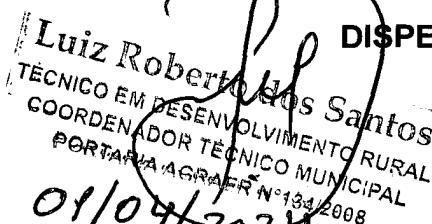 DISPE
Luiz Roberto dos Santos
TÉCNICO EM DESENVOLVIMENTO RURAL
COORDENADOR TÉCNICO MUNICIPAL
PORTARIA AGRAER Nº 134/2008
01/04/2024